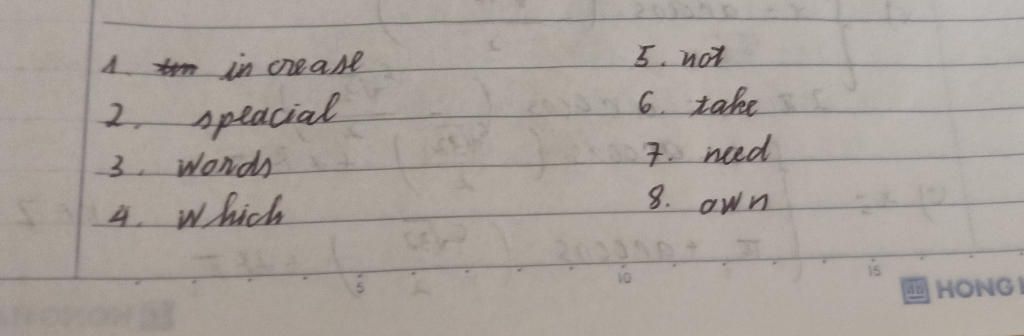 1. in crease
2. speacial
3. words
4. which
5. not
6. take
7. need
8. own
5 10 15
HONG